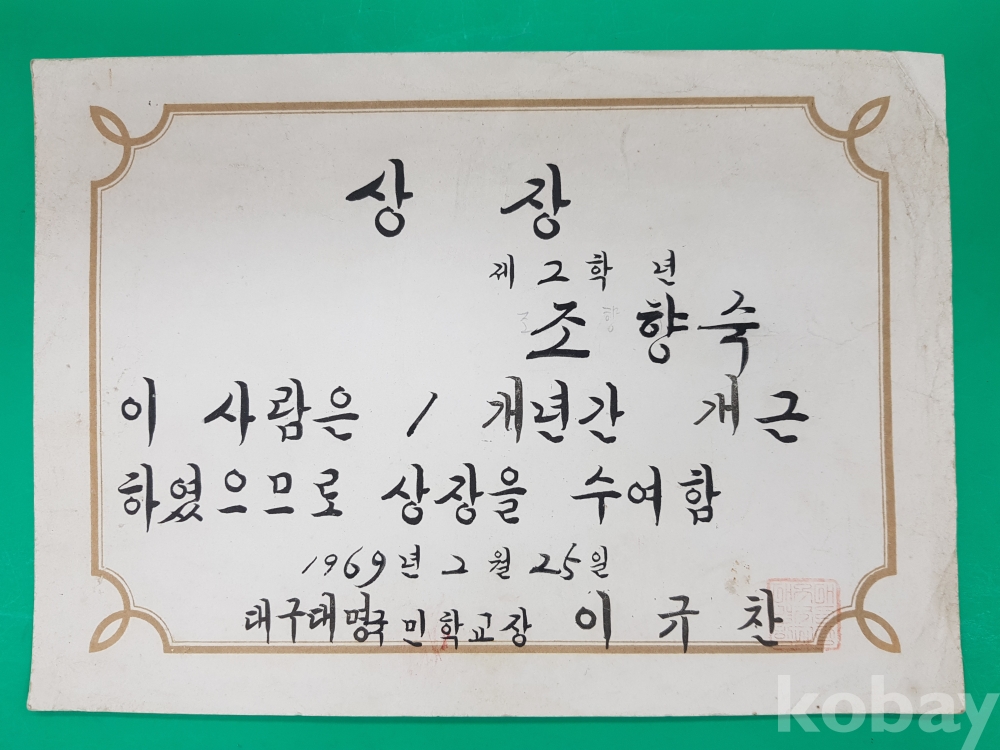 상 장
제 2 학 년
조 향 숙
이 사람은 1 개년간 개근
하였으므로 상장을 수여함
1969년 2월 25일
대구대명국민학교장 이 규 찬
kobay